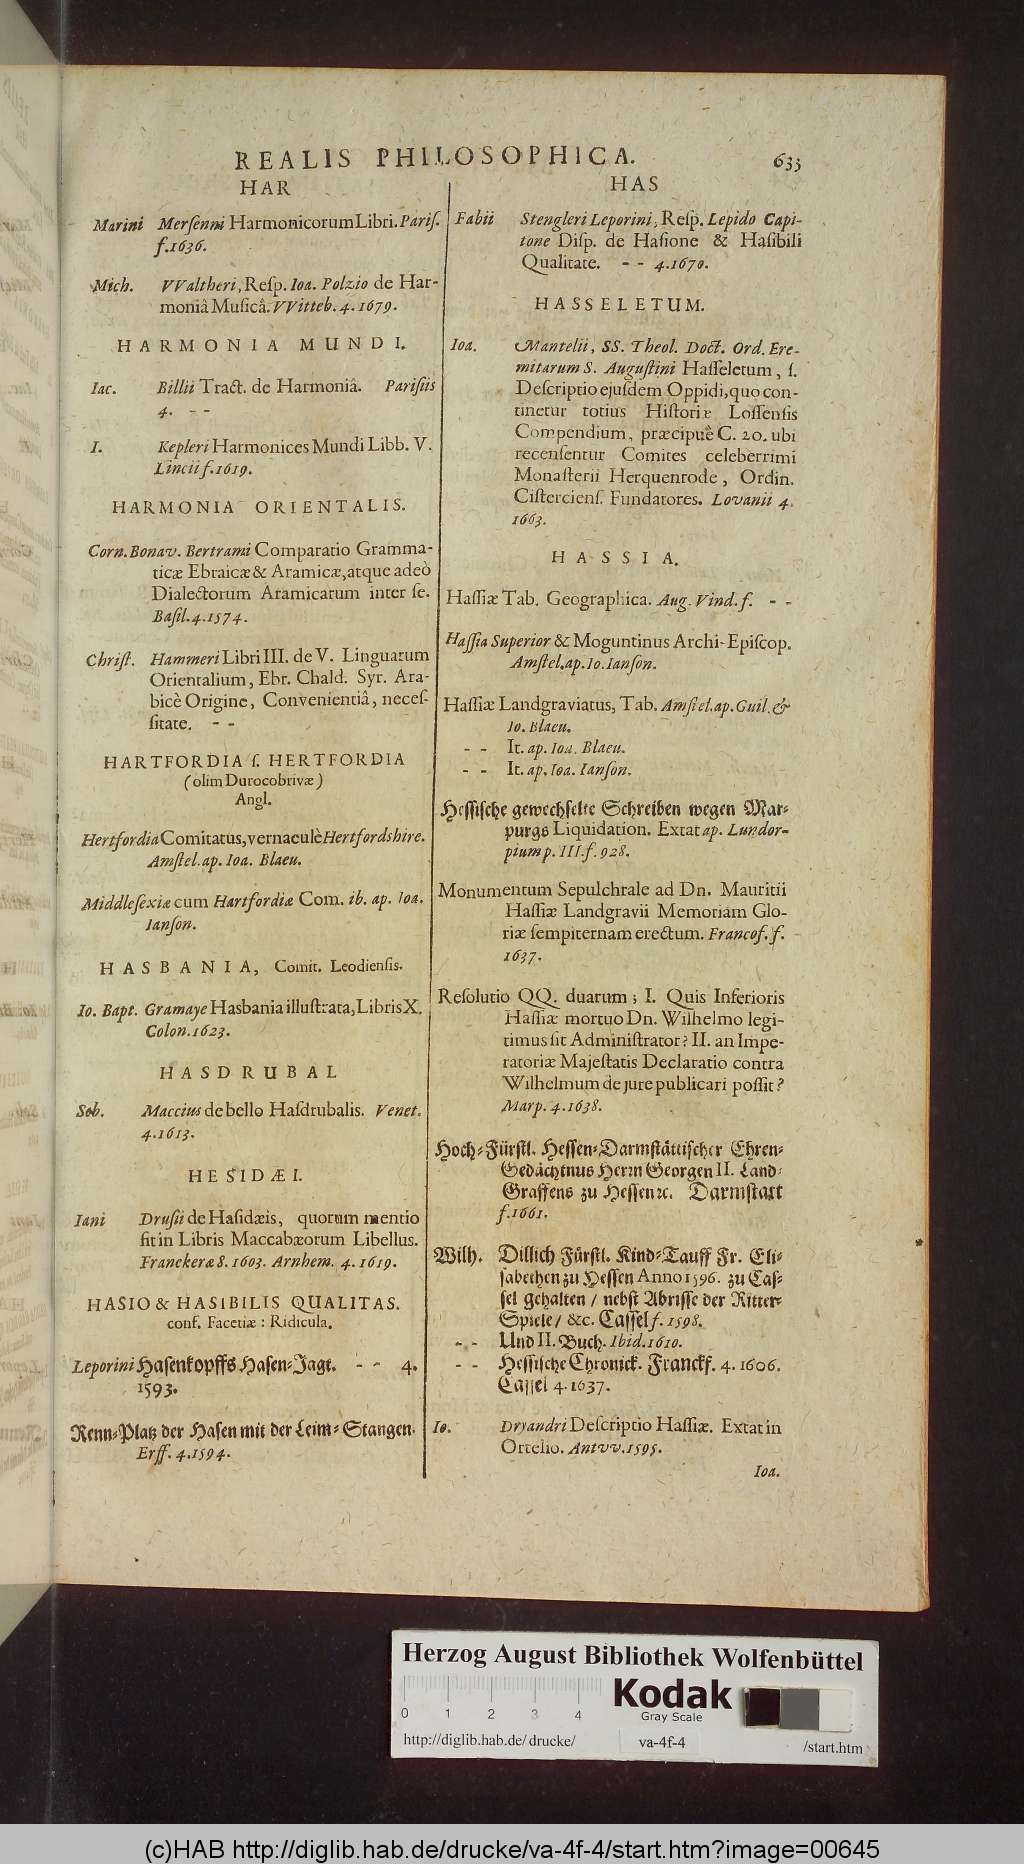 REALIS PHILOSOPHICA. 633
HAR
Marini Mersenni Harmonicorum Libri. Pariſ.
f. 1636.
Mich. VValtheri, Reſp. Ioa. Polzio de Har-
moniâ Muſicâ. VVitteb. 4. 1679.
HARMONIA MUNDI.
Iac. Billii Tract. de Harmoniâ. Pariſiis
4. - -
I. Kepleri Harmonices Mundi Libb. V.
Lincii f. 1619.
HARMONIA ORIENTALIS.
Corn. Bonav. Bertrami Comparatio Gramma-
ticæ Ebraicæ & Aramicæ, atque adeò
Dialectorum Aramicarum inter ſe.
Baſil. 4. 1574.
Chriſt. Hammeri Libri III. de V. Linguarum
Orientalium, Ebr. Chald. Syr. Ara-
bicè Origine, Convenientiâ, neceſ-
ſitate. - -
HARTFORDIA ſ. HERTFORDIA
(olim Durocobrivæ)
Angl.
Hertfordia Comitatus, vernaculè Hertfordshire.
Amſtel. ap. Ioa. Blaeu.
Middleſexiæ cum Hartfordiæ Com. ib. ap. Ioa.
Ianſon.
HASBANIA, Comit. Leodienſis.
Io. Bapt. Gramaye Hasbania illuſtrata, Libris X.
Colon. 1623.
HASDRUBAL
Seb. Maccius de bello Haſdrubalis. Venet.
4. 1613.
HESIDÆI.
Iani Druſii de Haſidæis, quorum mentio
ſit in Libris Maccabæorum Libellus.
Franekeræ 8. 1603. Arnhem. 4. 1619.
HASIO & HASIBILIS QUALITAS.
conf. Facetiæ: Ridicula.
Leporini Haſenkopffs Haſen-Jagt. - - 4.
1593.
Renn-Platz der Haſen mit der Leim-Stangen.
Erff. 4. 1594.
HAS
Fabii Stengleri Leporini, Reſp. Lepido Capi-
tone Diſp. de Haſione & Haſibili
Qualitate. - - 4. 1670.
HASSELETUM.
Ioa. Mantelii, SS. Theol. Doct. Ord. Ere-
mitarum S. Auguſtini Haſſeletum, ſ.
Deſcriptio ejuſdem Oppidi, quo con-
tinetur totius Hiſtoriæ Loſſenſis
Compendium, præcipuè C. 20. ubi
recenſentur Comites celeberrimi
Monaſterii Herquenrode, Ordin.
Ciſtercienſ. Fundatores. Lovanii 4.
1663.
HASSIA.
Haſſiæ Tab. Geographica. Aug. Vind. f. - -
Haſſia Superior & Moguntinus Archi-Epiſcop.
Amſtel. ap. Io. Ianſon.
Haſſiæ Landgraviatus, Tab. Amſtel. ap. Guil. &
Io. Blaeu.
- - It. ap. Ioa. Blaeu.
- - It. ap. Ioa. Ianſon.
Heſſiſche gewechſelte Schreiben wegen Mar-
purgs Liquidation. Extat ap. Lundor-
pium p. III. f. 928.
Monumentum Sepulchrale ad Dn. Mauritii
Haſſiæ Landgravii Memoriam Glo-
riæ ſempiternam erectum. Francof. f.
1637.
Reſolutio QQ. duarum; I. Quis Inferioris
Haſſiæ mortuo Dn. Wilhelmo legi-
timus ſit Adminiſtrator? II. an Impe-
ratoriæ Majeſtatis Declaratio contra
Wilhelmum de jure publicari poſſit?
Marp. 4. 1638.
Hoch-Fürſtl. Heſſen-Darmſtättiſcher Ehren-
Gedächtnus Herrn Georgen II. Land-
Graffens zu Heſſen ꝛc. Darmſtatt
f. 1661.
Wilh. Dillich Fürſtl. Kind-Tauff Fr. Eli-
ſabethen zu Heſſen Anno 1596. zu Caſ-
ſel gehalten / nebſt Abriſſe der Ritter-
Spiele / &c. Caſſel f. 1598.
- - Und II. Buch. Ibid. 1610.
- - Heſſiſche Chronick. Franckf. 4. 1606.
Caſſel 4. 1637.
Io. Dryandri Deſcriptio Haſſiæ. Extat in
Ortelio. Antvv. 1595.
Ioa.
Herzog August Bibliothek Wolfenbüttel
0 1 2 3 4
Kodak
Gray Scale
http://diglib.hab.de/drucke/ va-4f-4 /start.htm
(c)HAB http://diglib.hab.de/drucke/va-4f-4/start.htm?image=00645